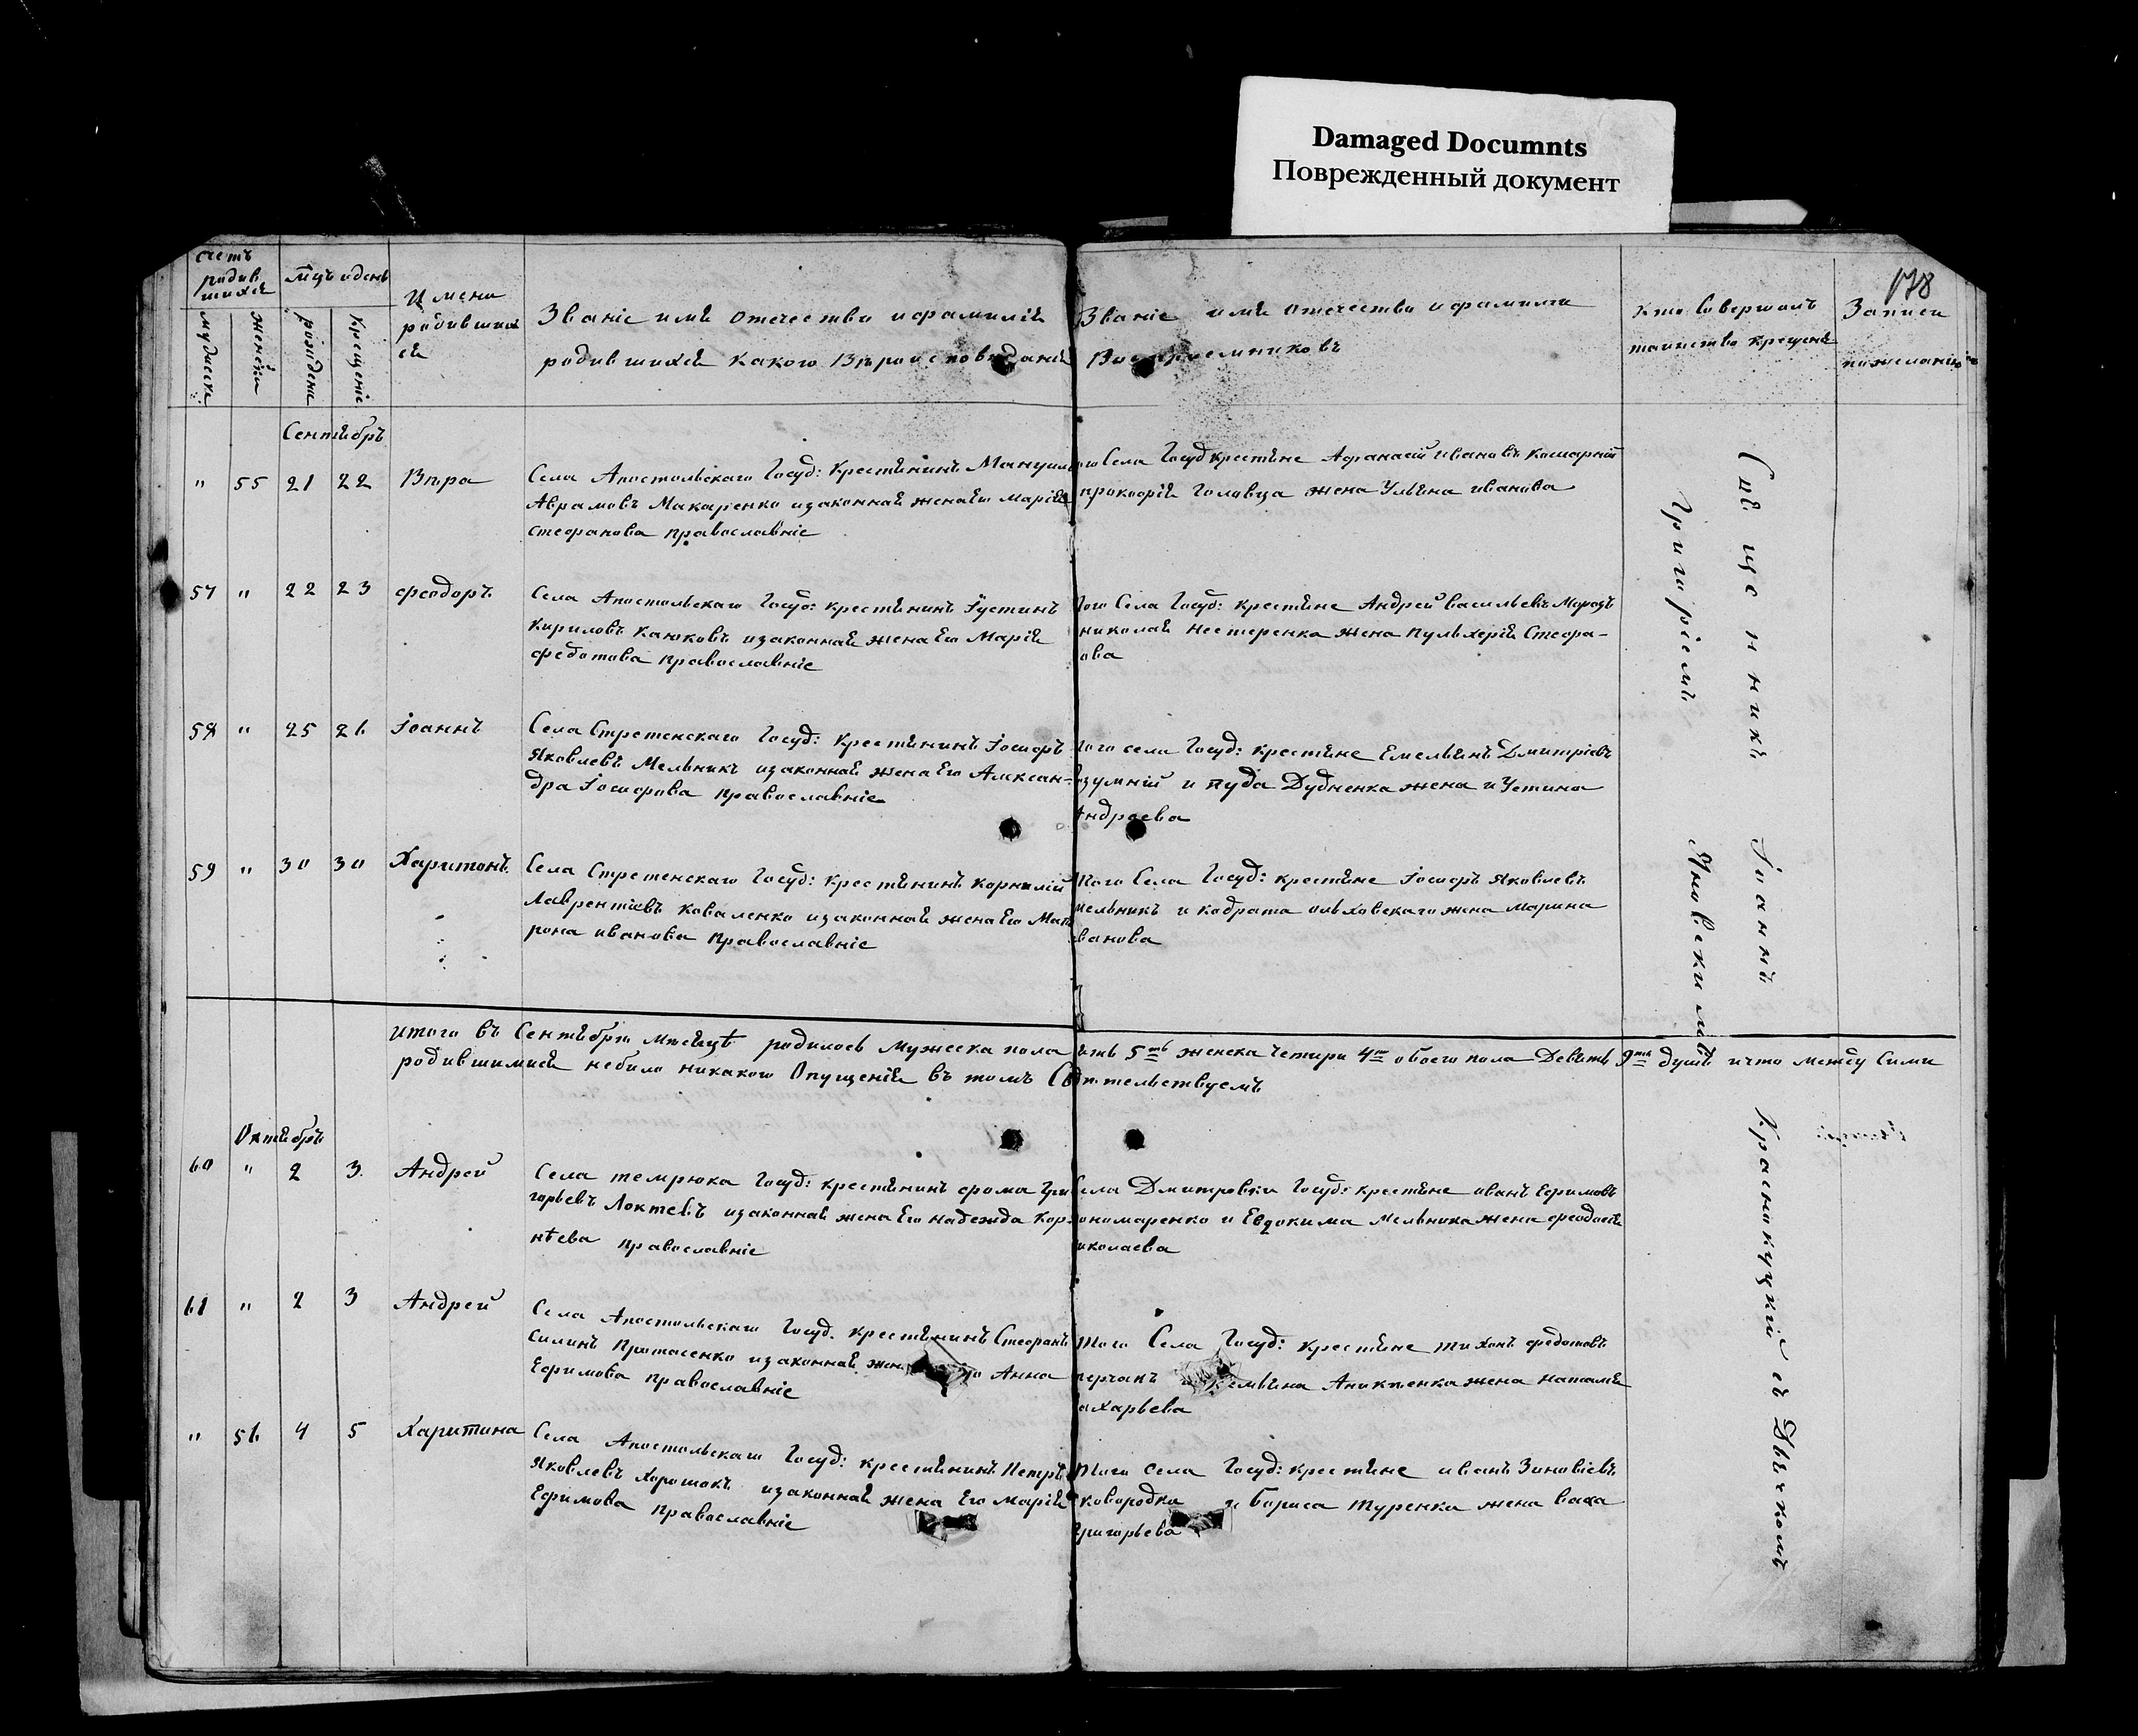 Damaged Documnts
Поврежденный документ
178
счетъ родив шихся
мцъ и день
Имена родивших ся
Званіе имя отечество и фамилія
родившихся какого Вѣроисповѣданія
Званіе имя отечество и фамилія
Воспріемниковъ
Кто Совершалъ
таинство крещенія
Записи
по желанію
мужеска
женска
рожденіе
крещеніе
Сентябрь
" 55 21 22 Вѣра
Села Апостольскаго Госуд: крестянинъ Мануилъ
Аврамовъ Макаренко и законная жена Его Марія
стефанова православніе
того Села Госуд крестяне Афанасій Ивановъ Кошарній
прокофія Головца жена Ульяна иванова
57 " 22 23 феодоръ
Села Апостольскаго Госуд: крестянинъ Іустинъ
Кириловъ Каюковъ и законная жена Его Марія
федотова православніе
того Села Госуд: крестяне Андрей васильевъ Морозъ
николая нестеренка жена пульхерія Стефа-
ова
58 " 25 26 Іоаннъ
Села Стретенскаго Госуд: крестянинъ Іосифъ
Яковлевъ Мельникъ и законная жена Его Алексан-
дра Іосифова православніе
того села Госуд: крестяне Емельянъ Дмитріевъ
зумній и пуда Дудненка жена иустина
Андреева
59 " 30 30 Харитонъ
Села Стретенскаго Госуд: крестянинъ корнилій
Лаврентіевъ коваленко и законная жена Его Мат
рона иванова православніе
того Села Госуд: крестяне Іосифъ Яковлевъ
мельникъ и кодрата ольховскаго жена марина
иванова
итого въ Сентябрѣ мѣсяцѣ родилось мужеска пола ять 5ть женска четыри 4ре обоего пола Девять 9ть душъ и что между Сими
родившимися небило никакого Опущенія въ томъ Свѣтельствуемъ
Октябрь
60 " 2 3. Андрей
Села темрюка Госуд: крестянинъ фома Гри
горьевъ Локтевъ и законная жена Его надежда Кор-
нѣева православніе
Села Дмитровки Госуд: крестяне иванъ Ефимовъ
ономаренко и Евдокима Мельника жена феодосія
николаева
61 " 2 3 Андрей
Села Апостольскаго Госуд. крестянинъ Стефанъ
силинъ Протасенко и законная жен го Анна
Ефимова православніе
того Села Госуд: крестяне тихонъ федотовъ
перчакъ емьяна Аникѣенка жена наталія
захарьева
" 56 4 5 Харитина
Села Апостольскаго Госуд: крестянинъ Петръ
Яковлевъ Хорошокъ и законная жена Его Марія
Ефимова православніе
того села Госуд: крестяне иванъ Зиновіевъ
сковородка и бориса туренка жена васа
григорьева
Священникъ Іоаннъ Краснокуцкій съ Дьячкомъ
Григоріемъ Яновскимъ